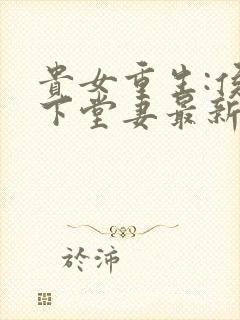 貴女重生:侯
下堂妻最新
於沛